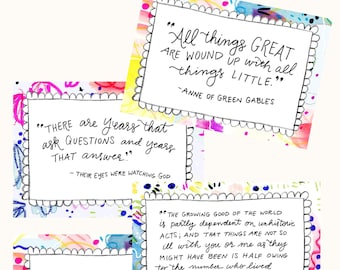 "All things GREAT
ARE WOUND UP WITH all
things LITTLE."
~ANNE OF GREEN GABLES
"THERE are years that
ask QUESTIONS and years
THAT answer."
~ THEIR EYES WERE WATCHING GOD
"THE GROWING GOOD OF THE WORLD
is partly dependent on unhistoric
ACTS; AND THAT THINGS ARE NOT SO
ill with you or me as they
MIGHT HAVE BEEN IS HALF OWING
to the number who lived